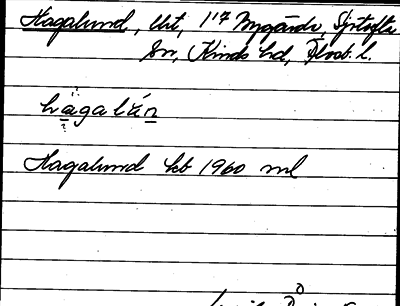 Hagalund, lht, 1/17 Nygärde, Sjötofta
sn, Kinds hd, Älvsb. l.
hägalún
Hagalund kb 1960 ml